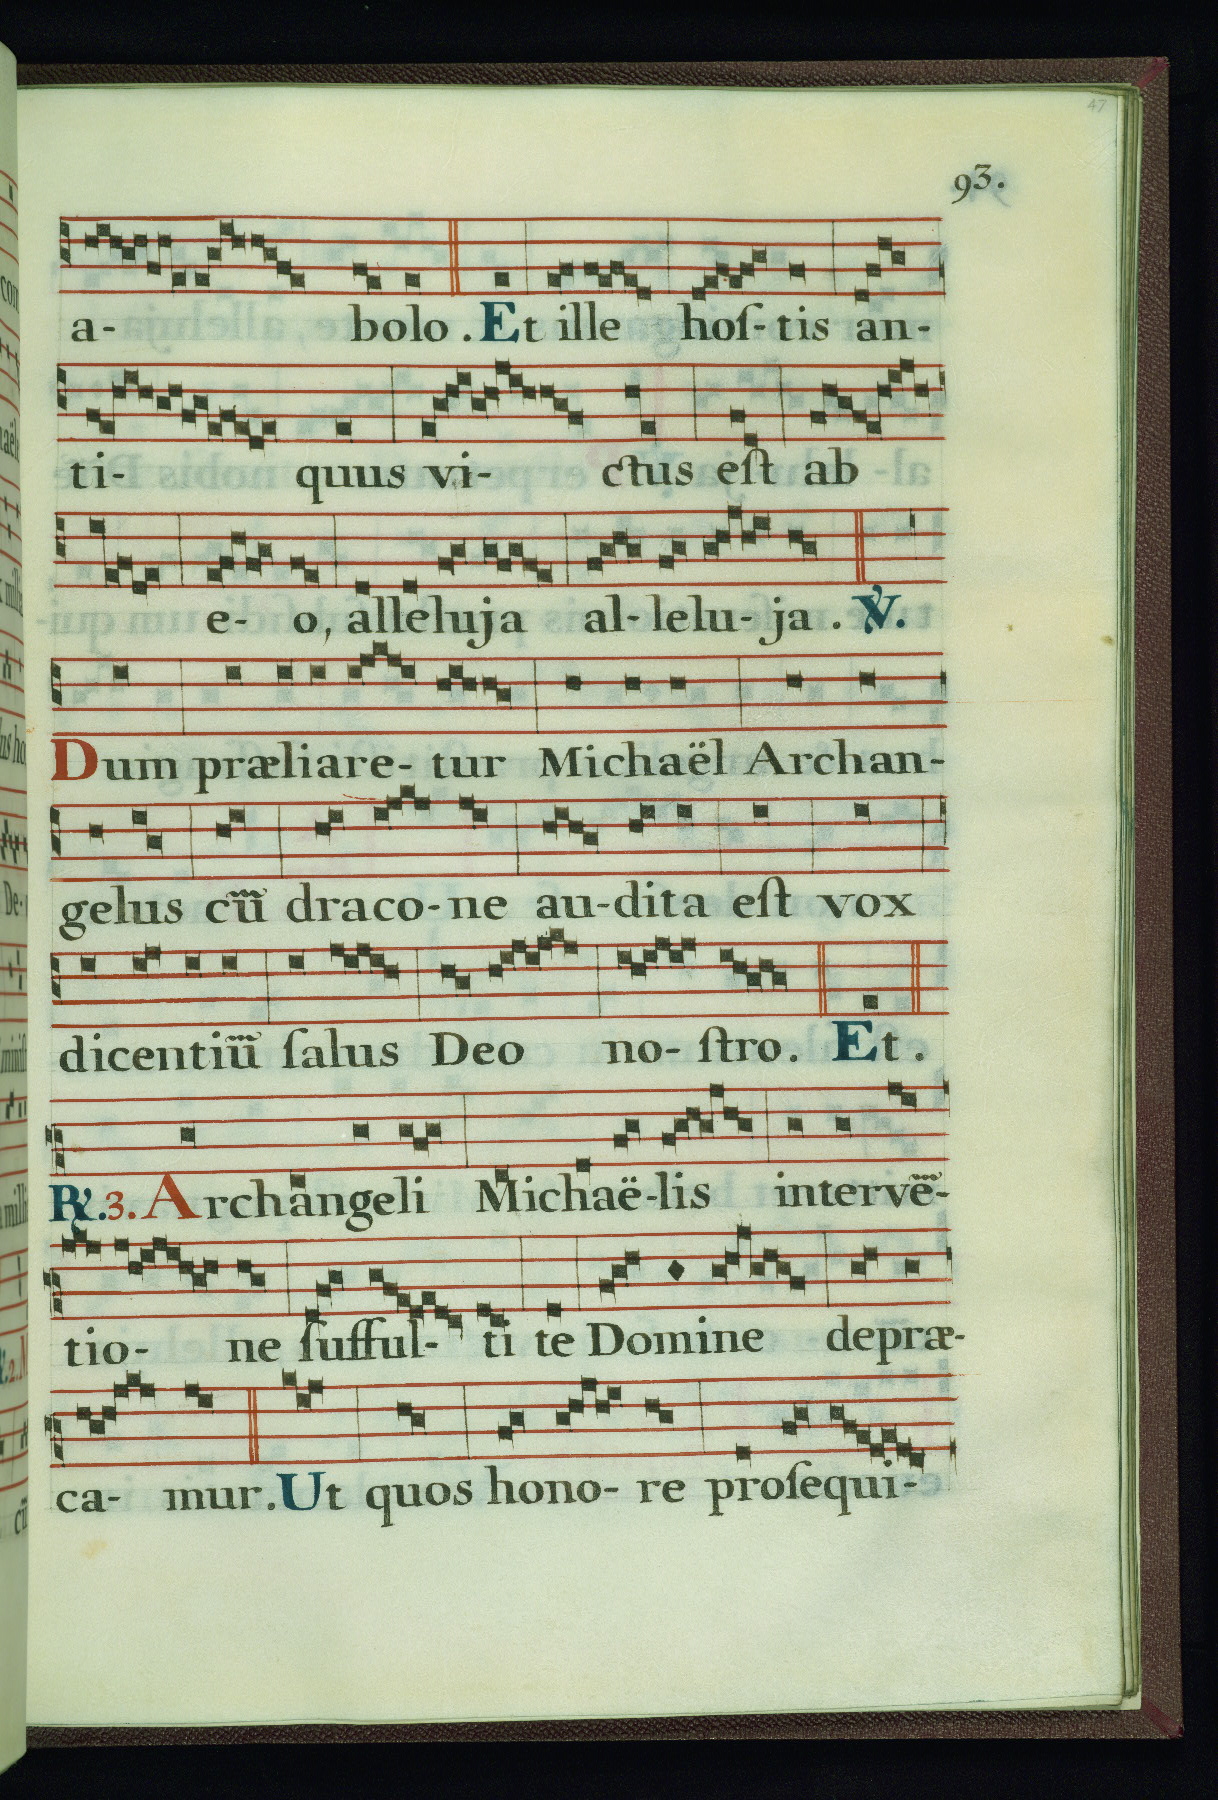 47
93.
a- bolo. Et ille hoſ-tis an-
ti- quus vi- ctus eſt ab
e- o, alleluja al-lelu-ja. ℣.
Dum præliare-tur Michaël Archan-
gelus cũ draco-ne au-dita eſt vox
dicentiũ ſalus Deo no-ſtro. Et.
℟.3. Archangeli Michaë-lis intervẽ-
tio- ne ſufful- ti te Domine depræ-
ca- mur. Ut quos hono- re proſequi-